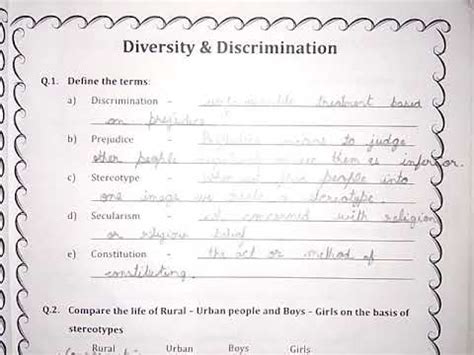 Diversity & Discrimination
Q.1. Define the terms:
a) Discrimination - treatment based
on prejudice
b) Prejudice - means to judge
other people them as inferior.
c) Stereotype - people into
one image we create a stereotype.
d) Secularism - not concerned with religion
or religious belief
e) Constitution - the act or method of
constituting.
Q.2. Compare the life of Rural - Urban people and Boys - Girls on the basis of
stereotypes
Rural Urban Boys Girls